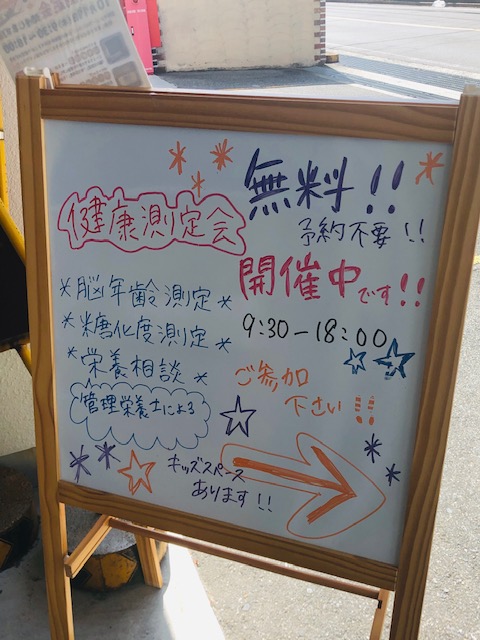 無料!!
予約不要!!
健康測定会
開催中です!!
9:30-18:00
*脳年齢測定*
*糖化度測定*
*栄養相談*
管理栄養士による
ご参加
下さい!!
キッズスペース
あります!!